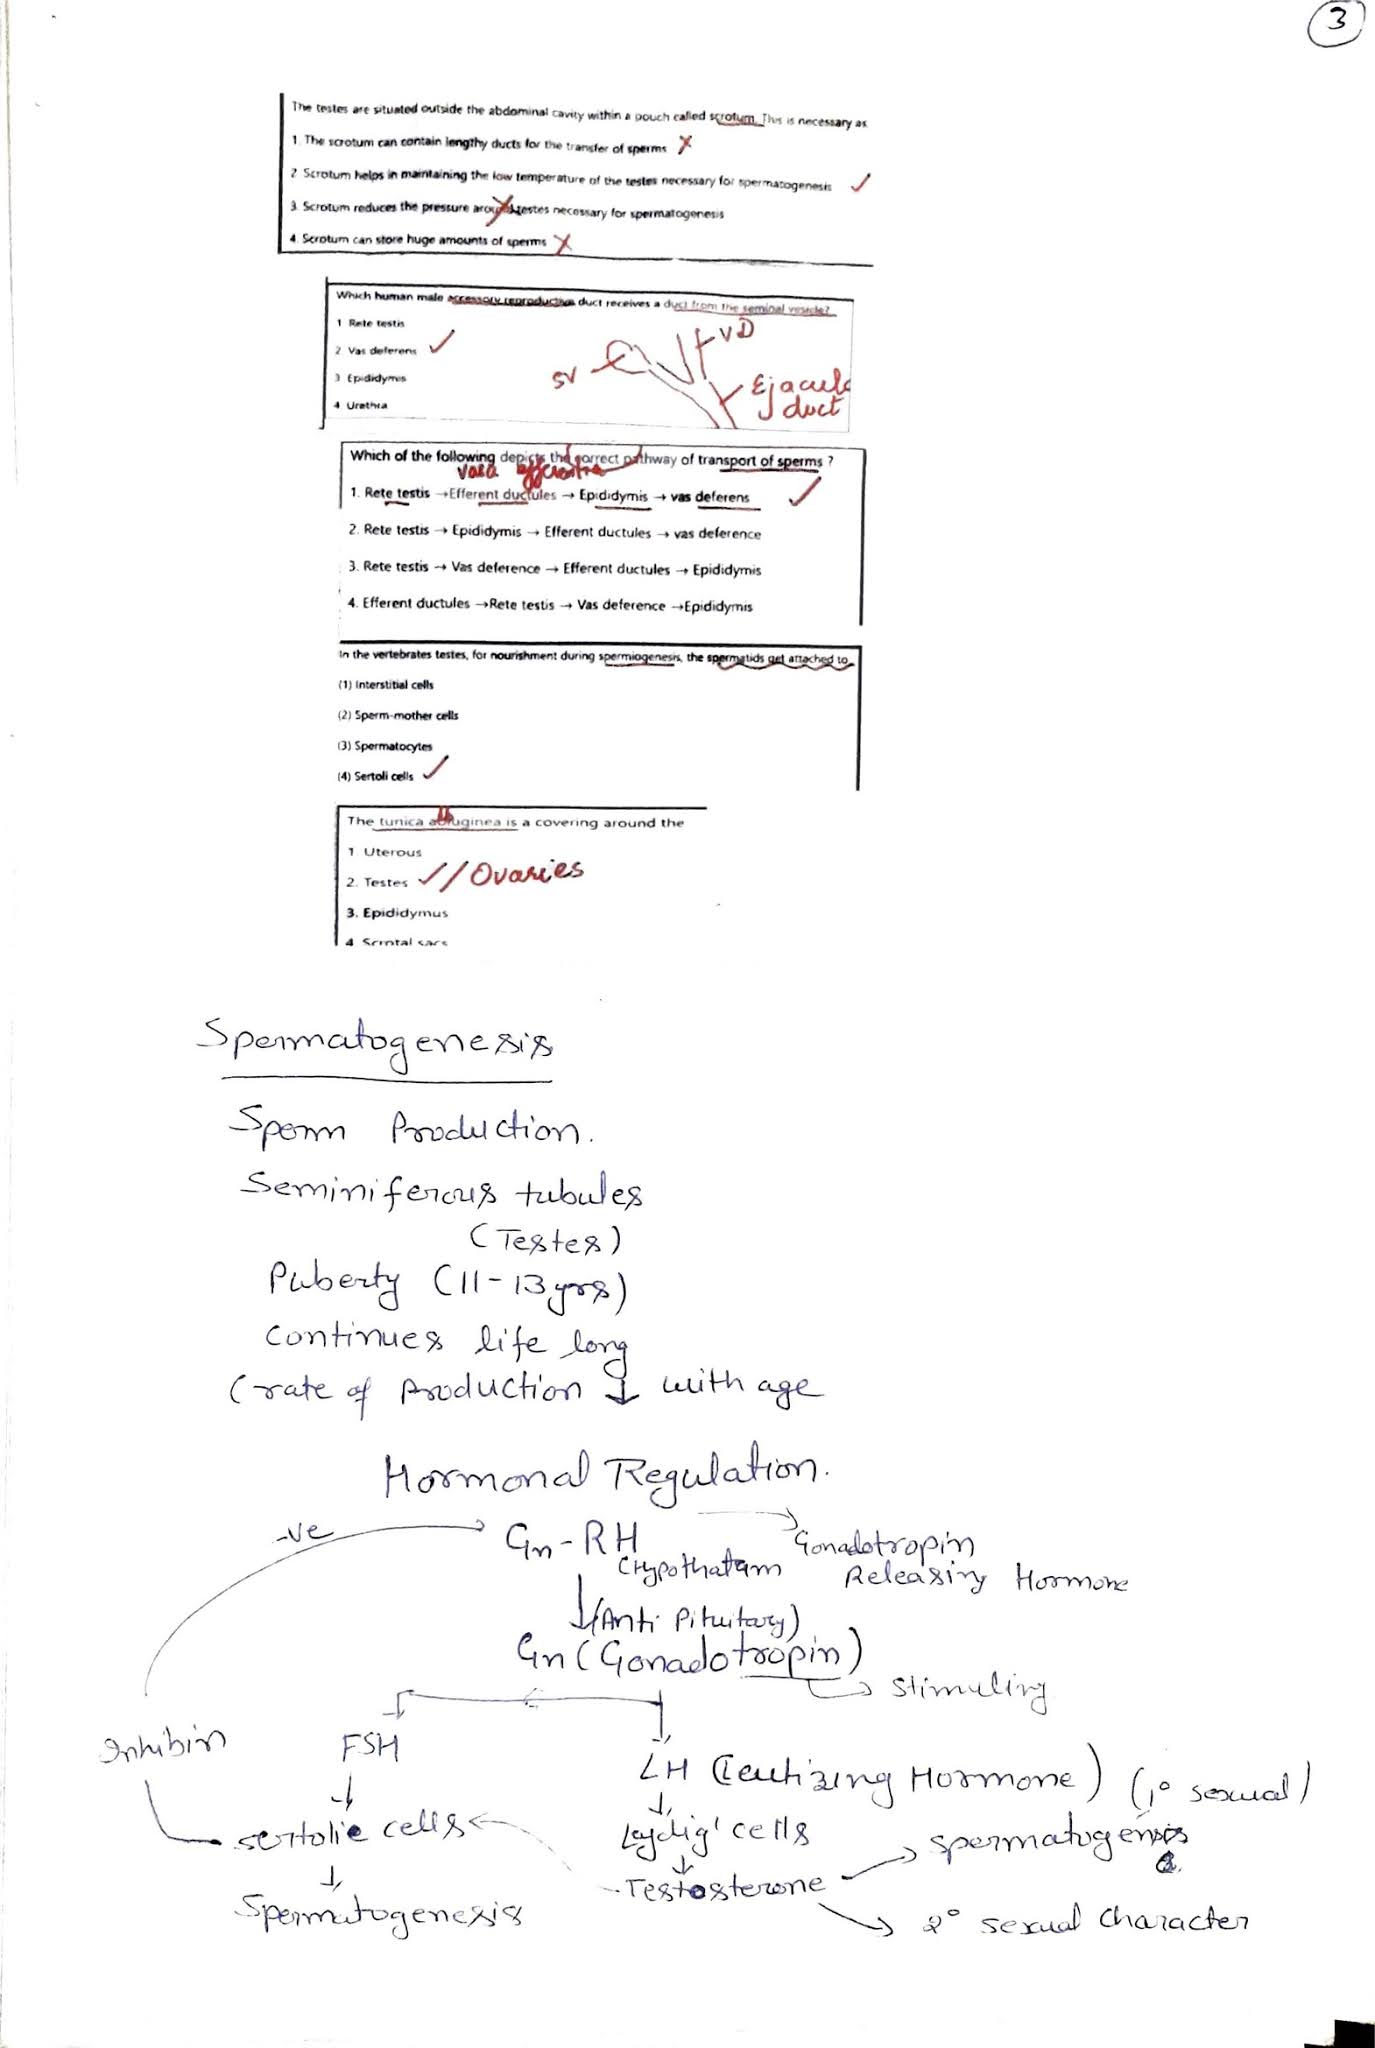 3
The testes are situated outside the abdominal cavity within a pouch called scrotum. This is necessary as
1. The scrotum can contain lengthy ducts for the transfer of sperms
2 Scrotum helps in maintaining the low temperature of the testes necessary for spermatogenesis
3. Scrotum reduces the pressure around testes necessary for spermatogenesis
4. Scrotum can store huge amounts of sperms
Which human male accessory reproductive duct receives a duct from the seminal vesicle?
1 Rete testis
2 Vas deferens
3 Epididymis
4 Urethra
VD
SV
Ejacula
duct
Which of the following depicts the correct pathway of transport of sperms ?
vasa efferentia
1. Rete testis →Efferent ductules → Epididymis → vas deferens
2. Rete testis → Epididymis → Efferent ductules → vas deference
3. Rete testis → Vas deference → Efferent ductules → Epididymis
4. Efferent ductules →Rete testis → Vas deference →Epididymis
In the vertebrates testes, for nourishment during spermiogenesis, the spermatids get attached to
(1) Interstitial cells
(2) Sperm-mother cells
(3) Spermatocytes
(4) Sertoli cells
The tunica albuginea is a covering around the
1 Uterous
2. Testes // Ovaries
3. Epididymus
4 Scrotal sacs
Spermatogenesis
Sperm Production.
Seminiferous tubules
(Testes)
Puberty (11-13 yrs)
Continues life long
(rate of Production ↓ with age
Hormonal Regulation.
-ve
Gn-RH → Gonadotropin
(Hypothalam Releasing Hormone
(Anti Pituitary)
Gn (Gonadotropin)
→ Stimuling
Inhibin FSH
LH (Leutizing Hormone) (1° sexual)
sertolie cells Leydig' cells → spermatogensis
Spermatogenesis Testosterone
→ 2° sexual character